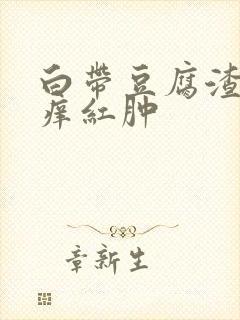 白帶豆腐渣
痒紅肿
章新生